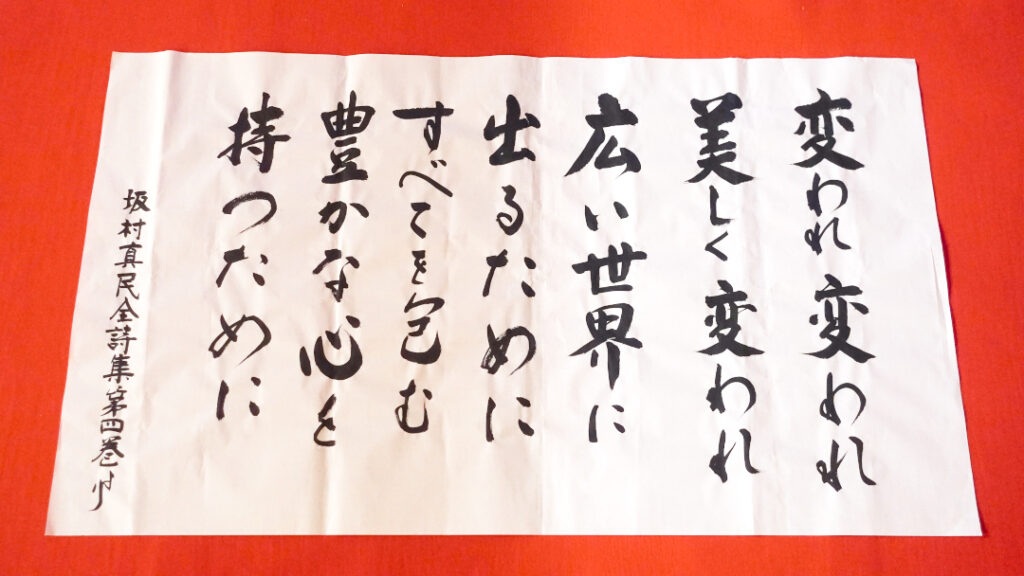 変われ変われ
美しく変われ
広い世界に
出るために
すべてを包む
豊かな心を
持つために
坂村真民全詩集第四巻より